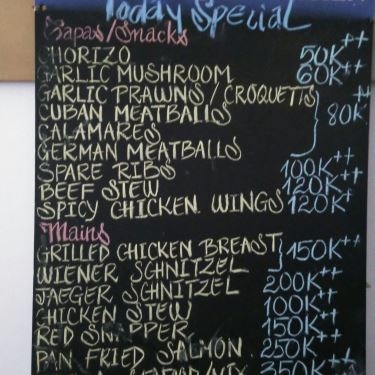 Today Special
Tapas/Snacks
CHORIZO 50K++
GARLIC MUSHROOM 60K++
GARLIC PRAWNS/CROQUETTS
CUBAN MEATBALLS 80K++
CALAMARES
GERMAN MEATBALLS
SPARE RIBS 100K++
BEEF STEW 120K++
SPICY CHICKEN WINGS 120K+
Mains
GRILLED CHICKEN BREAST 150K++
WIENER SCHNITZEL
JAEGER SCHNITZEL 200K++
CHICKEN STEW 100K++
RED SNAPPER 150K++
PAN FRIED SALMON 250K++
SEAFOOD MIX 350K++